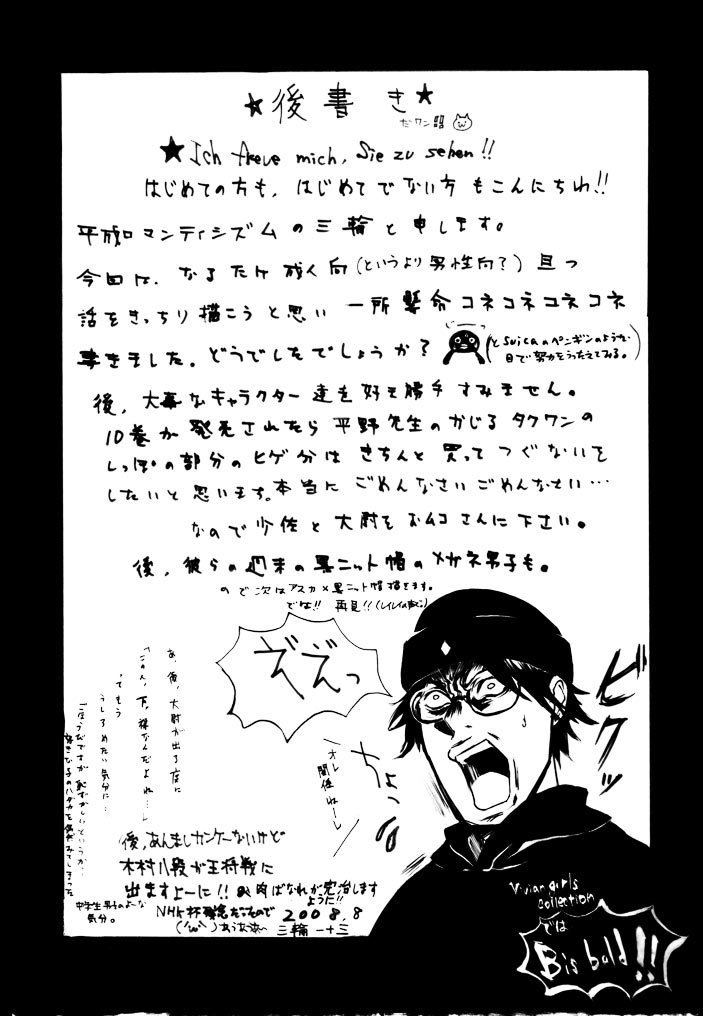 ★後書き★
だワン!!
★Ich freue mich, Sie zu sehen!!
はじめての方も、はじめてでない方もこんにちわ!!
平成ロマンティシズムの三輪と申します。
今回は、なるたけ成人向(というより男性向?)且つ
話をきっちり描こうと思い 一所懸命コネコネコネコネ
書きました。どうでしたでしょうか?
(とSuicaのペンギンのような
目で努力をうったえてみる。)
後、大事なキャラクター達を好き勝手すみません。
10巻が発売されたら平野先生のかじるタクワンの
しっぽの部分のヒゲ分はきちんと買ってつぐないを
したいと思います。本当にごめんなさいごめんなせい…
なので少佐と大尉をおムコさんに下さい。
後、彼らの週末の黒ニット帽のメガネ男子も。
ので次はアスカ×黒ニット帽描きます。
では!! 再見!!
ぞぞっ
ビクッ
ちょっ
オレ
関係ねーし
あ、後、大尉が出る度に
「ごめん、下、裸なんだよね…」
ってもう
うしろめたい気分に…
中学生男子のよーな
気分。
後、あんましカンケーないけど
木村八段が王将戦に
出ますよーに!!
肉ばなれが完治します
ように!!
NHK杯残念だったので
2008.8
三輪一十三
Vivian girls
collection
では
Bis bald!!